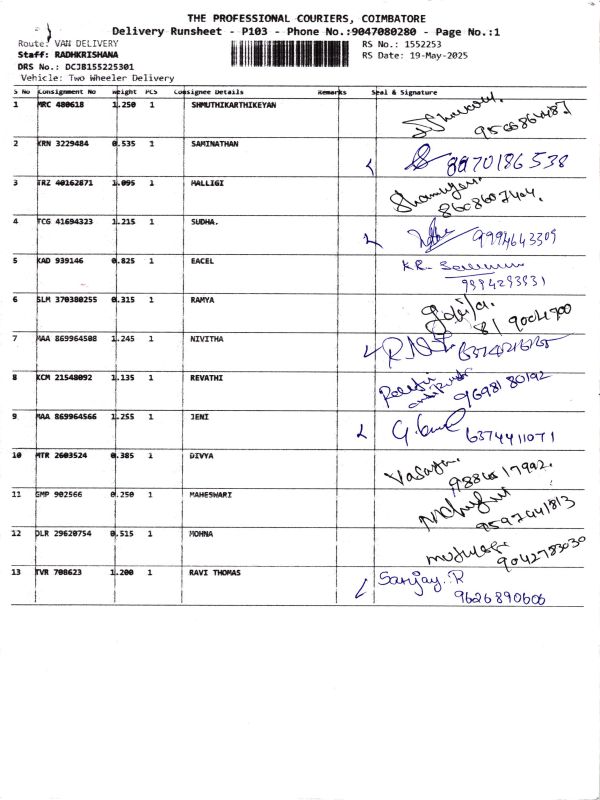 THE PROFESSIONAL COURIERS, COIMBATORE
Delivery Runsheet - P103 - Phone No.:9047080280 - Page No.:1
Route: VAN DELIVERY
RS No.: 1552253
Staff: RADHKRISHANA
RS Date: 19-May-2025
DRS No.: DCJB155225301
Vehicle: Two Wheeler Delivery
S No Consignment No Weight PCS Consignee Details Remarks Seal & Signature
1 MRC 480618 1.250 1 SHMUTHIKARTHIKEYAN
2 KRN 3229484 0.535 1 SAMINATHAN 8970186538
3 TRZ 40162871 1.095 1 MALLIGI
8608607404.
4 TCG 41694323 1.215 1 SUDHA. 9994643309
5 KAD 939146 0.825 1 EACEL KR.
9994293931
6 SLM 370380255 0.315 1 RAMYA
7 MAA 869964508 1.245 1 NIVITHA
8 KCM 21548092 1.135 1 REVATHI
9698180192
9 MAA 869964566 1.255 1 JENI
6374411071
10 MTR 2603524 0.385 1 DIVYA
11 GMP 902566 0.250 1 MAHESWARI
12 DLR 29620754 0.515 1 MOHNA
9042783030
13 TVR 708623 1.200 1 RAVI THOMAS Sanjay. R
9626890606